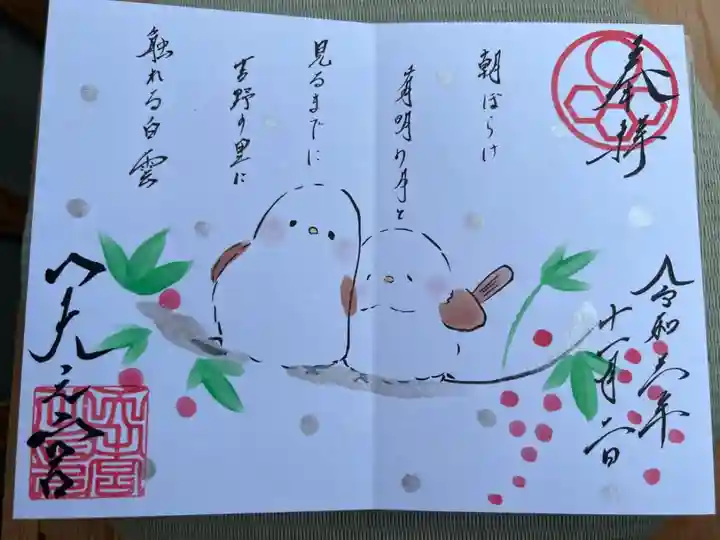 奉拝
令和六年
十一月二日
朝ぼらけ
有明の月と
見るまでに
吉野の里に
触れる白雲